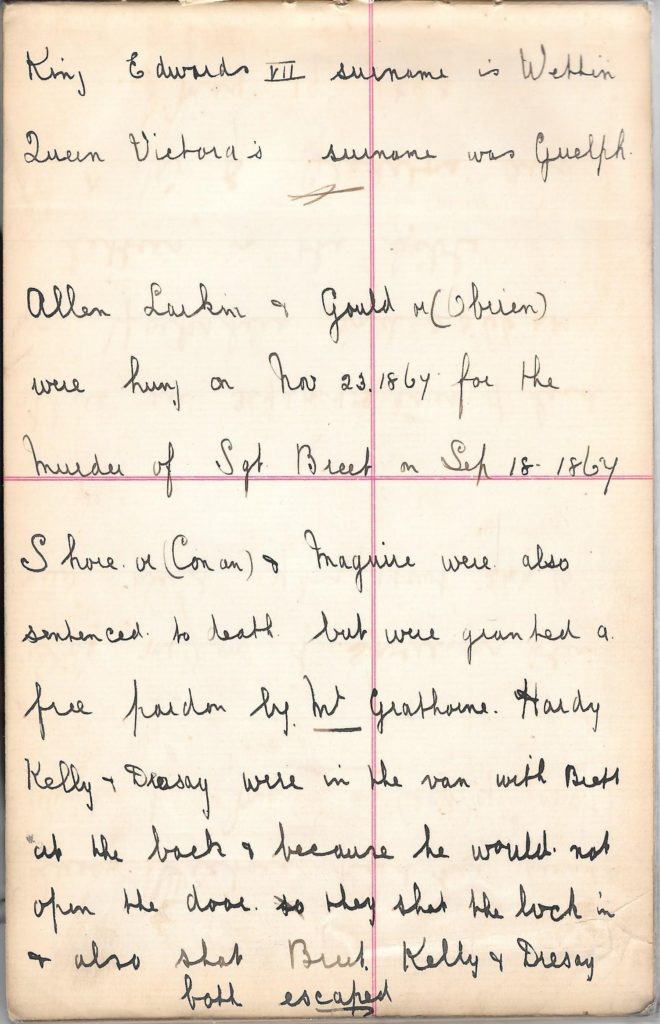 King Edwards VII surname is Wettin
Queen Victora's surname was Guelph.
Allen Larkin & Gould or (Obrien)
were hung on Nov 23. 1867 for the
Murder of Sgt Brett on Sep 18 - 1867
Shore. or (Conan) & Maguire were also
sentenced. to death but were granted a.
free pardon by. Mr Grathorne. Hardy
Kelly & Deasay were in the van with Brett
at the back & because he would. not
open the door. so they shot the lock in
& also shot Brett. Kelly & Deesay
both escaped